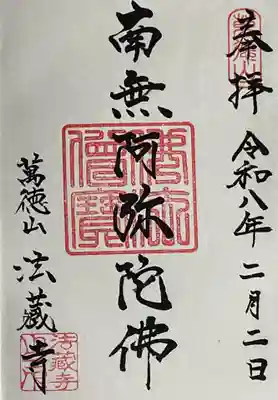 奉拝
令和八年二月二日
南無阿弥陀佛
萬徳山 法蔵寺
佛法僧寶